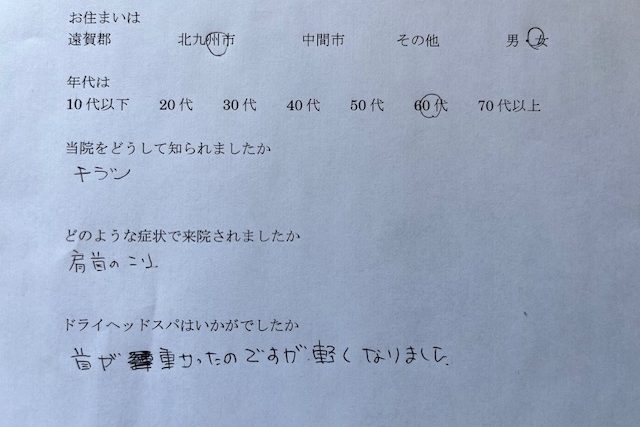 お住まいは
遠賀郡 北九州市 中間市 その他 男・女
年代は
10代以下 20代 30代 40代 50代 60代 70代以上
当院をどうして知られましたか
チラシ
どのような症状で来院されましたか
肩首のこり
ドライヘッドスパはいかがでしたか
首が重かったのですが軽くなりました